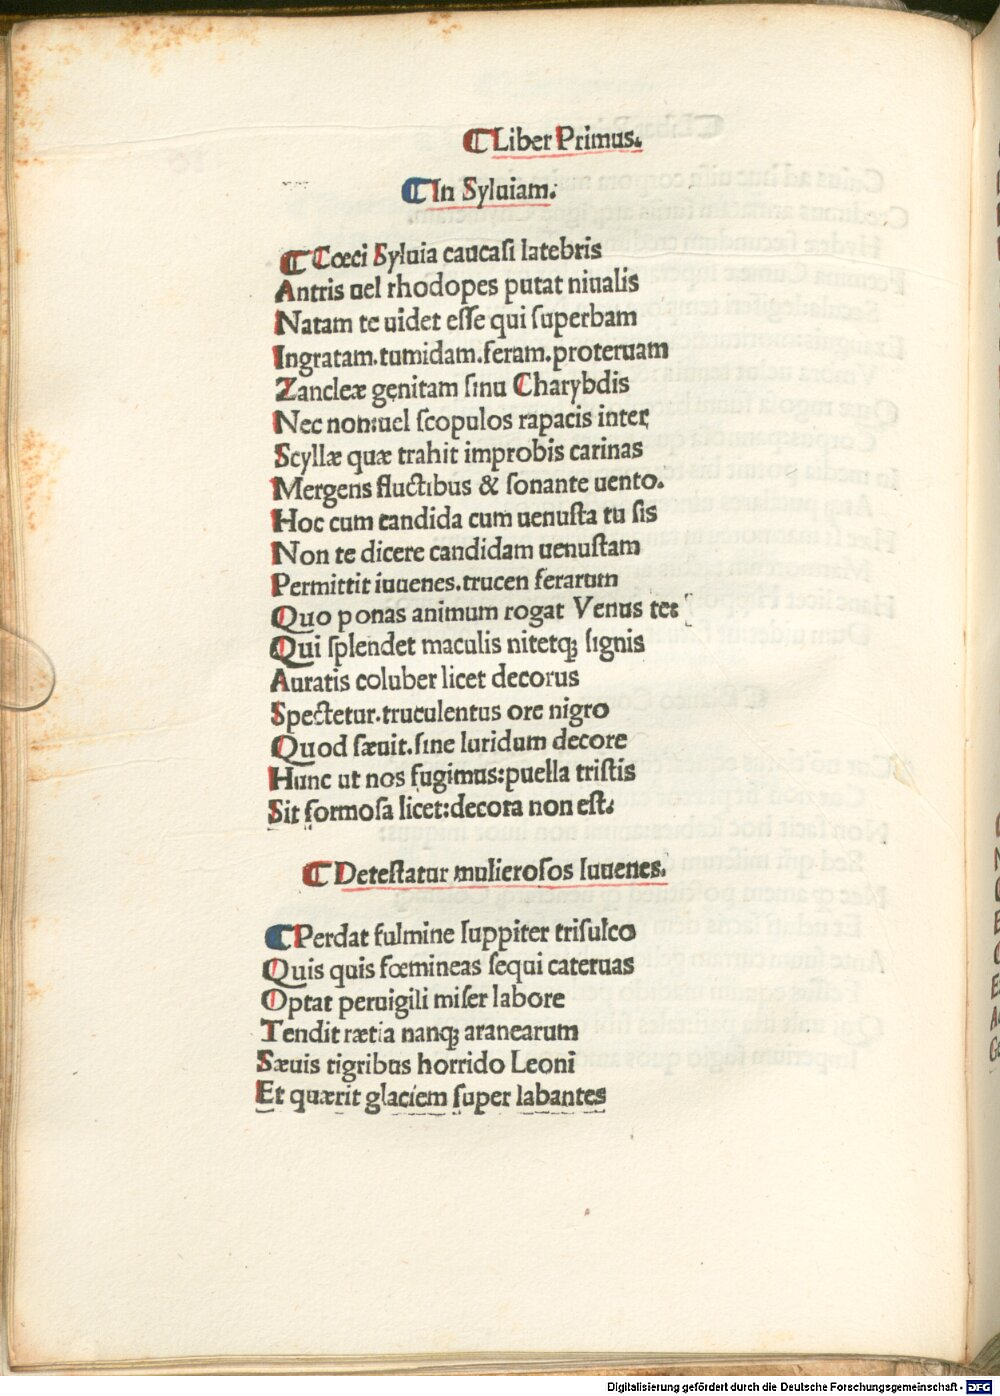 ⸿Liber Primus.
⸿In Syluiam.
⸿Cœci Syluia caucaſi latebris
Antris uel rhodopes putat niualis
Natam te uidet eſſe qui ſuperbam
Ingratam.tumidam.feram.proteruam
Zancleæ genitam ſinu Charybdis
Nec non:uel ſcopulos rapacis inter
Scyllæ quæ trahit improbis carinas
Mergens fluctibus & ſonante uento.
Hoc cum candida cum uenuſta tu ſis
Non te dicere candidam uenuſtam
Permittit iuuenes.trucen ferarum
Quo ponas animum rogat Venus te:
Qui ſplendet maculis nitetqꝫ ſignis
Auratis coluber licet decorus
Spectetur.truculentus ore nigro
Quod ſæuit.ſine luridum decore
Hunc ut nos fugimus:puella triſtis
Sit formoſa licet:decora non eſt.
⸿Deteſtatur mulieroſos Iuuenes.
⸿Perdat fulmine Iuppiter triſulco
Quis quis fœmineas ſequi cateruas
Optat peruigili miſer labore
Tendit rætia nanqꝫ aranearum
Sæuis tigribus horrido Leoni
Et quærit glaciem ſuper labantes
Digitalisierung gefördert durch die Deutsche Forschungsgemeinschaft - DFG